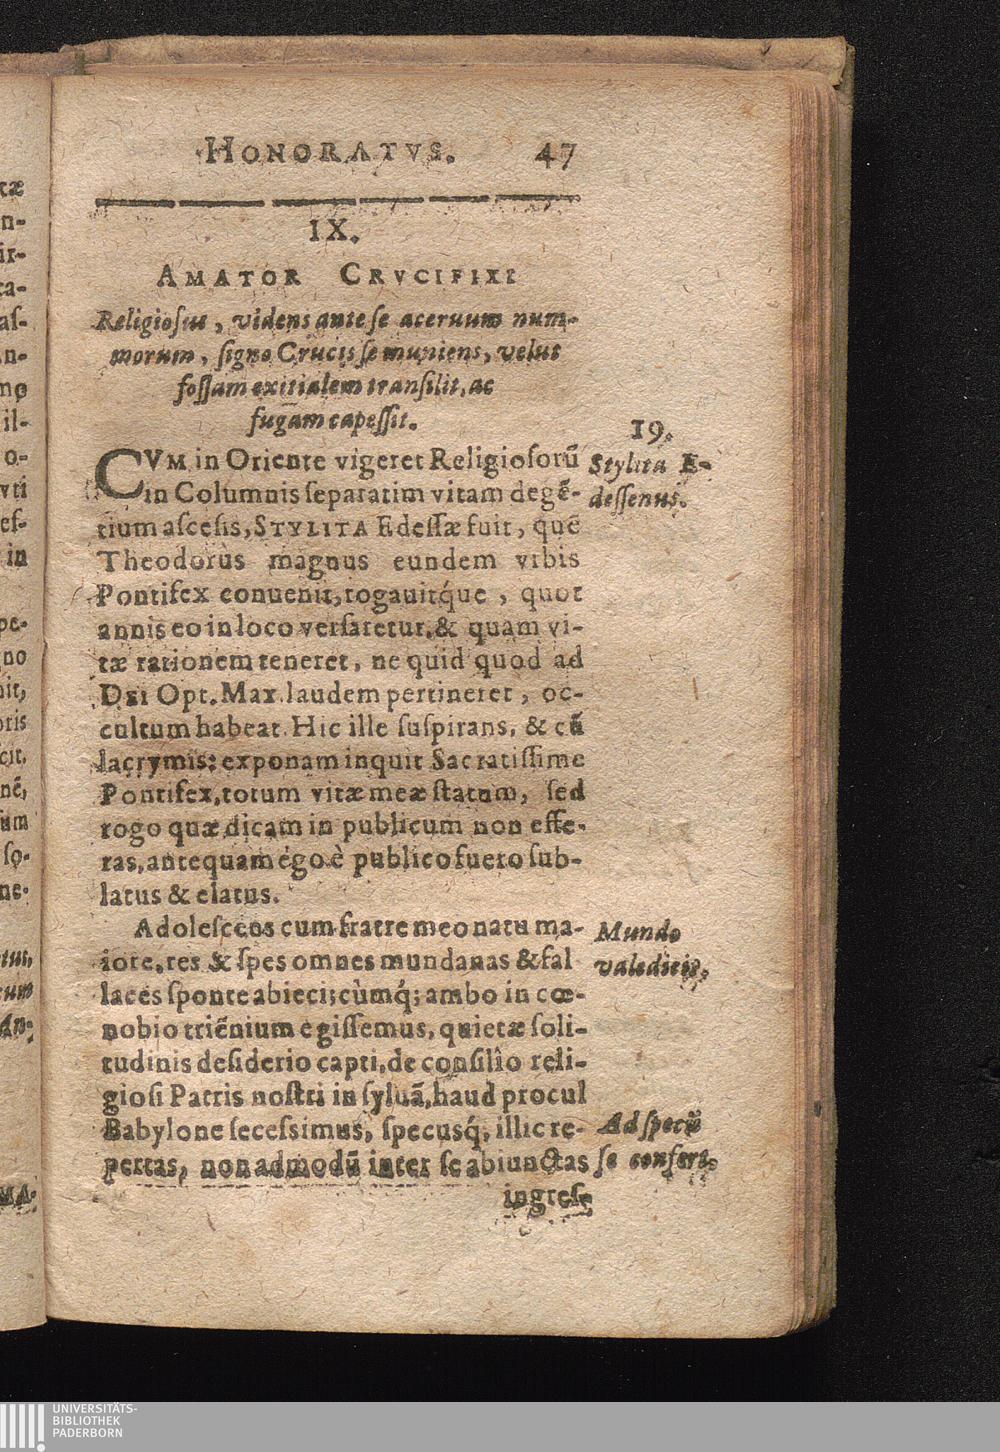 HONORATVS. 47
IX.
AMATOR CRVCIFIXI
Religiosus, videns ante se aceruum num-
morum, signo Crucis se muniens, velut
fossam exitialem transilit, ac
fugam capessit.
CVM in Oriente vigeret Religiosorū
in Columnis separatim vitam degē-
tium ascesis, STYLITA Edessæ fuit, quē
Theodorus magnus eundem vrbis
Pontifex conuenit, rogauitq́ue, quot
annis eo in loco versaretur, & quam vi-
tæ rationem teneret, ne quid quod ad
DEI Opt. Max. laudem pertineret, oc-
cultum habeat. Hic ille suspirans, & cū
lacrymis: exponam inquit Sacratissime
Pontifex, totum vitæ meæ statum, sed
rogo quæ dicam in publicum non effe-
ras, antequam ego è publico fuero sub-
latus & elatus.
Adolescens cum fratre meo natu ma-
iore, res & spes omnes mundanas & fal
laces sponte abieci; cùmq́; ambo in cœ-
nobio triēnium egissemus, quietæ soli-
tudinis desiderio capti, de consilio reli-
giosi Patris nostri in syluā, haud procul
Babylone secessimus, specusq́, illic re-
pertas, non admodū inter se abiunctas
ingres-
19.
Stylita E-
dessenus.
Mundo
valedicit.
Ad specū
se confert.
tæ
n-
ir-
ta-
as-
n-
mo
il-
o-
vti
es-
in
pe-
no
nit,
oris
cit.
nē,
um
so-
ne-
tus,
cum
An-
MA-
UNIVERSITÄTS-
BIBLIOTHEK
PADERBORN